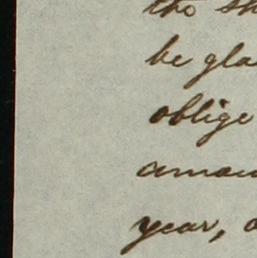 the sh
be gla
oblige
amou
year, a